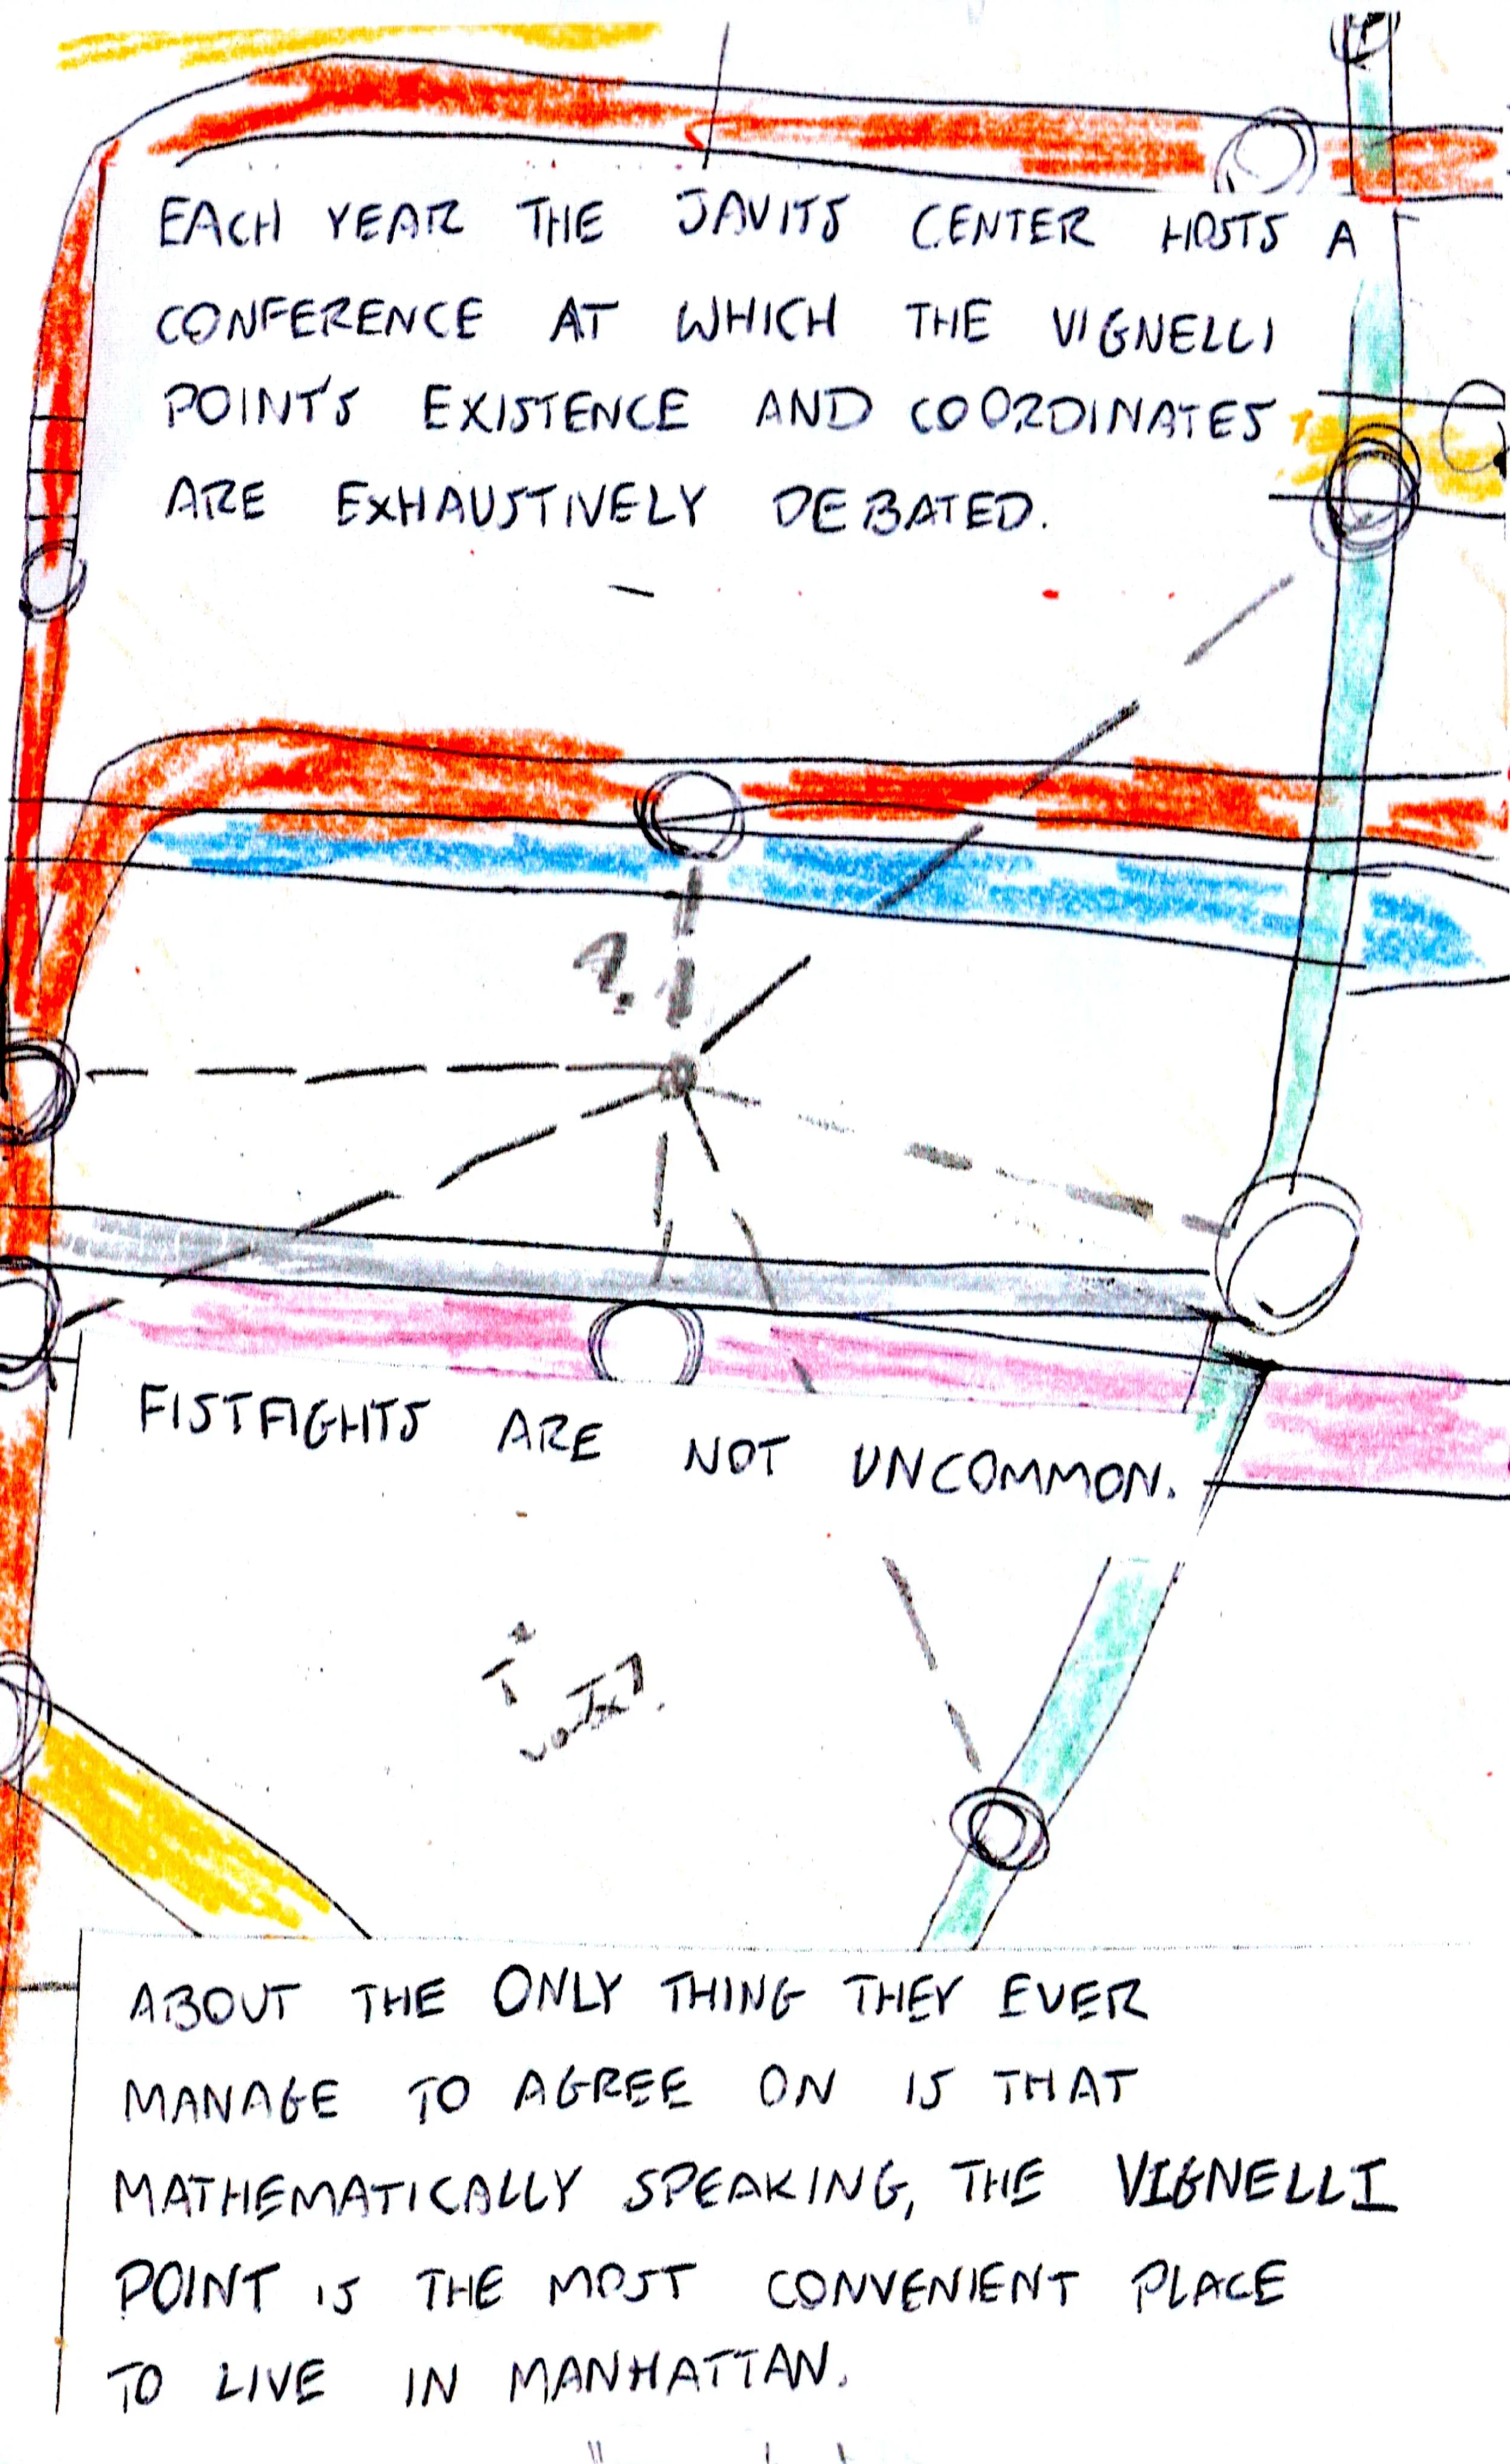 EACH YEAR THE JAVITS CENTER HOSTS A
CONFERENCE AT WHICH THE VIGNELLI
POINT'S EXISTENCE AND COORDINATES
ARE EXHAUSTIVELY DEBATED.
FISTFIGHTS ARE NOT UNCOMMON.
ABOUT THE ONLY THING THEY EVER
MANAGE TO AGREE ON IS THAT
MATHEMATICALLY SPEAKING, THE VIGNELLI
POINT IS THE MOST CONVENIENT PLACE
TO LIVE IN MANHATTAN.